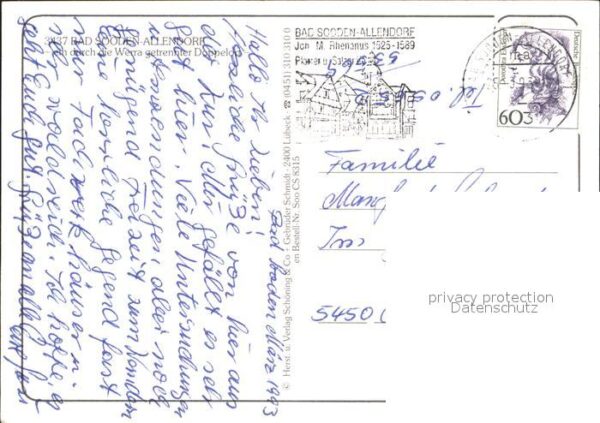 3437 BAD SOODEN-ALLENDORF
– ich durch die Werra getrennter Doppelort
Bad Sooden März 1993
Hallo Ihr Lieben!
Herzliche Grüße von hier aus
der Kur. Mir gefällt es sehr
gut hier. Viele Untersuchungen
Anwendungen, aber noch
genügend Freizeit zum Wandern
Eine herrliche Gegend fast
nur Fachwerkhäuser u.
sehr waldreich. Ich hoffe, es
geht Euch gut. Grüße an alle
© Herst. u. Verlag Schöning & Co · Gebrüder Schmidt · 2400 Lübeck · ☎ (0451) 310310
en Bestell-Nr. Soo CS 8315
BAD SOODEN-ALLENDORF
Joh. M. Rhenanus 1525-1589
Pfarrer u.
Tel.
ALLENDORF
Deutsche
60
Familie
5450
privacy protection
Datenschutz